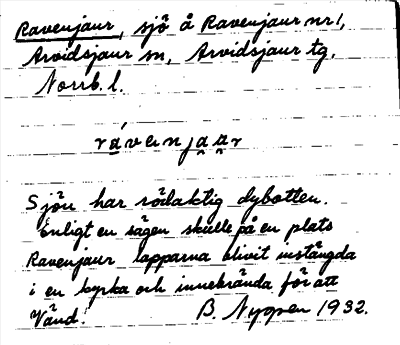 Ravenjaur, sjö å Ravenjaur nr 1,
Arvidsjaur sn, Arvidsjaur tg.
Norrb. l.
rávenjaar
Sjön har rödaktig dybotten.
Enligt en sägen skulle på en plats
Ravenjaur lapparna blivit instängda
i en kyrka och innebrända för att
Vänd!
B. Nyman 1932.